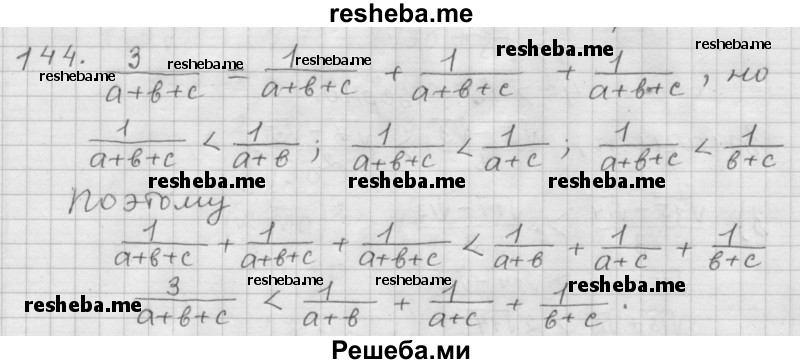 resheba.me
144. 3/(a+в+c) − 1/(a+в+c) + 1/(a+в+c) + 1/(a+в+c), но
resheba.me resheba.me resheba.me resheba.me resheba.me
1/(a+в+c) < 1/(a+в); 1/(a+в+c) < 1/(a+c); 1/(a+в+c) < 1/(в+c)
resheba.me resheba.me resheba.me
Поэтому
1/(a+в+c) + 1/(a+в+c) + 1/(a+в+c) < 1/(a+в) + 1/(a+c) + 1/(в+c)
resheba.me resheba.me resheba.me
3/(a+в+c) < 1/(a+в) + 1/(a+c) + 1/(в+c).
resheba.me
Решеба.ми